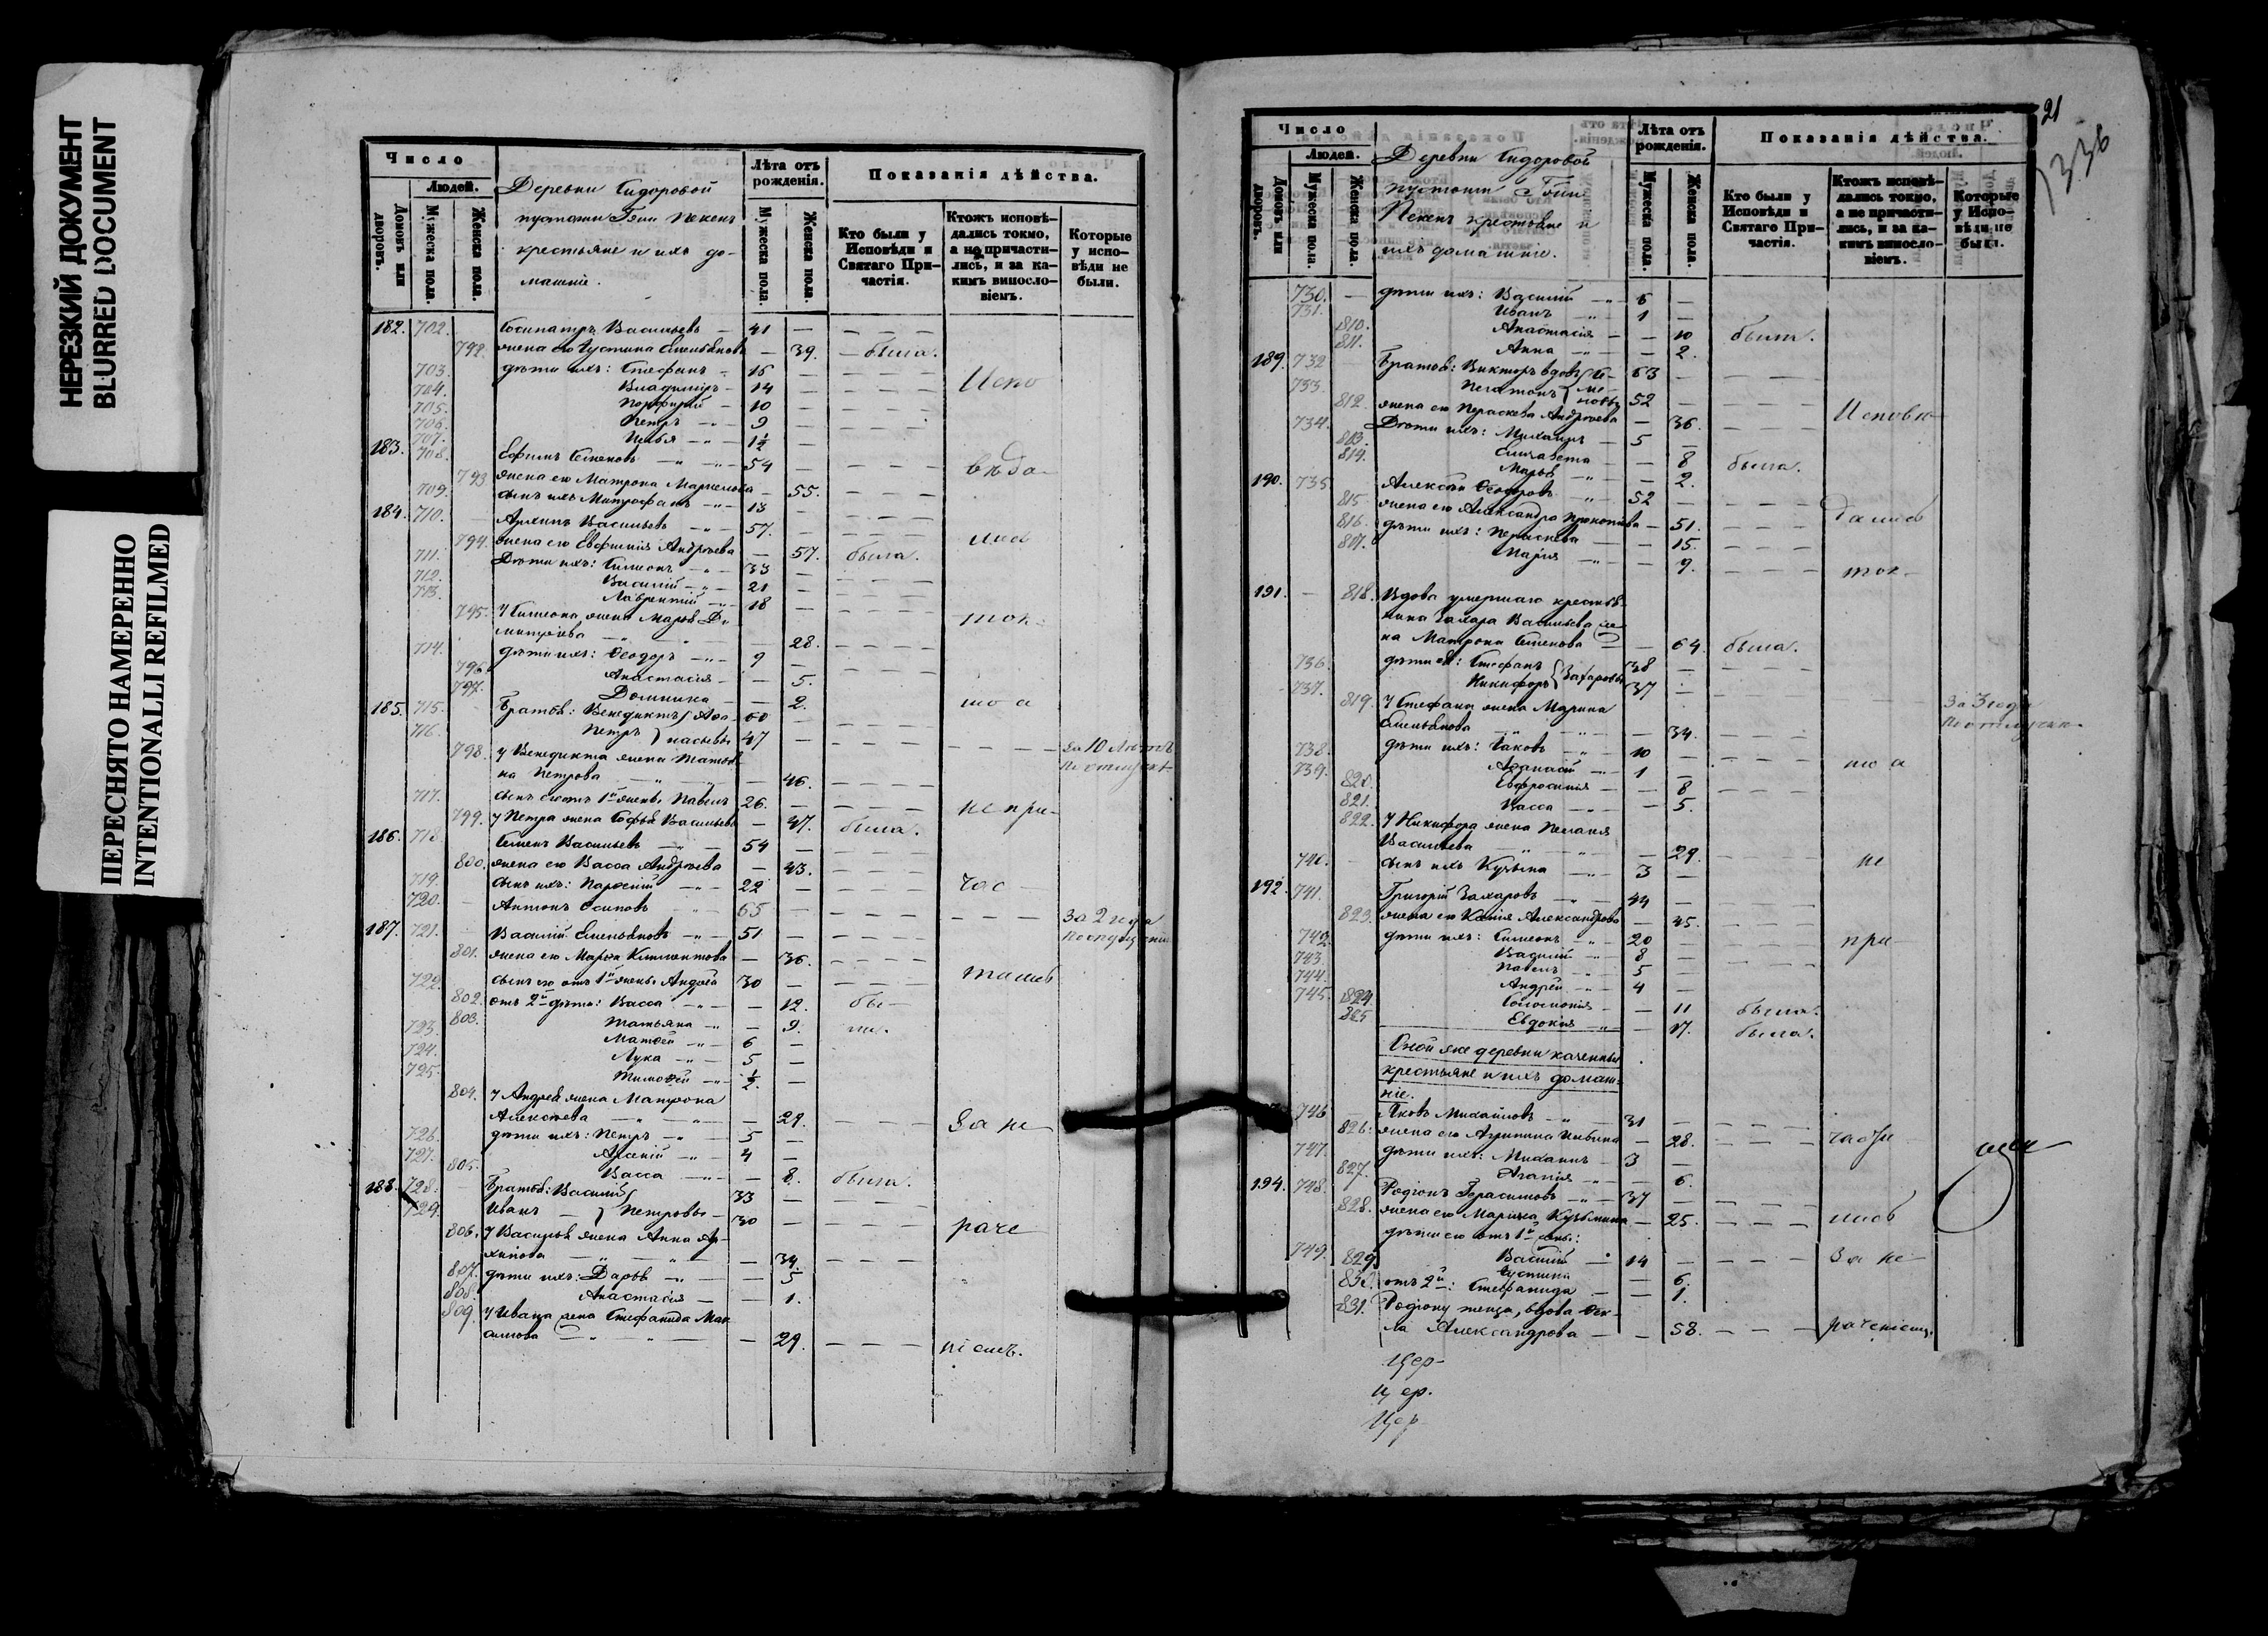 НЕРЕЗКИЙ ДОКУМЕНТ
BLURRED DOCUMENT
ПЕРЕСНЯТО НАМЕРЕННО
INTENTIONALLI REFILMED
Число
Людей.
Домовъ или дворовъ.
Мужеска пола.
Женска пола.
Деревни Сидоровой
пустоши Гоши Пекенъ
крестьяне и ихъ до-
машніе.
Лѣта отъ рожденія.
Мужеска пола.
Женска пола.
Показанія дѣйства.
Кто были у Исповѣди и Святаго Причастія.
Ктожъ исповѣдались токмо, а не причастились, и за какимъ винословіемъ.
Которые у исповѣди не были.
182. 702. Сосипатръ Васильевъ 41
792. жена его Іустина Емельянова 39. была.
703. дѣти ихъ: Стефанъ 16 Испо
704. Владимиръ 14
705. Порфирій 10
706. Петръ 9
707. Илья 1½
183. 708. Ефимъ Семеновъ 54 вѣда-
793 жена его Матрона Маркелова 55.
709. сынъ ихъ Митрофанъ 13
184. 710. Архипъ Васильевъ 57.
794. жена его Евфимія Андреева 57. была. лись
711. Дѣти ихъ: Симеонъ 33
712. Василій 21
713. Лаврентій 18
795. У Симеона жена Марья Ди-
митріева 28. ток-
714. дѣти ихъ: Ѳеодоръ 9
796. Анастасія 5.
797. Домника 2.
185. 715. Братья: Венедиктъ Аѳа- 60 мо а
716. Петръ насьевы 47
798. у Венедикта жена Татья- За 10 лѣтъ
на Петрова 46. По отлучкѣ
717. сынъ его отъ 1й жены Павелъ 26.
799. у Петра жена Софья Васильева 47. была. не при-
186. 718. Семенъ Васильевъ 54
800. жена его Васса Андреева 43.
719. сынъ ихъ: Парѳеній 22 час
720. Антонъ Осиповъ 65 За 2 года
187. 721. Василій Емельяновъ 51
801. жена его Марья Климентова 36.
722. сынъ его отъ 1й жены Андрей 30 тились
802. отъ 2й дѣти: Васса 12. бы-
803. Татьяна 9. ли.
723. Матѳей 6
724. Лука 5
725. Тимоѳей ½
804. У Андрея жена Матрона
Алексѣева 29. За не
726. дѣти ихъ: Петръ 5
727. Арсеній 4
805. Васса 8. была.
188. 728. Братья: Василій 33
729. Иванъ Петровы 30
806. У Василья жена Анна Ар- раче
хипова 34.
807. дѣти ихъ: Дарья 5
808. Анастасія 1.
809. У Ивана жена Стефанида Мак-
симова 29. ніемъ.
21
1336
Число
Людей.
Домовъ или дворовъ.
Мужеска пола.
Женска пола.
Деревни Сидоровой
пустоши Гоши
Пекенъ крестьяне и
ихъ домашніе.
Лѣта отъ рожденія.
Мужеска пола.
Женска пола.
Показанія дѣйства.
Кто были у Исповѣди и Святаго Причастія.
Ктожъ исповѣдались токмо, а не причастились, и за какимъ винословіемъ.
Которые у Исповѣди не были.
730. дѣти ихъ: Василій 6
731. Иванъ 1
810. Анастасія 10 были.
811. Анна 2.
189. 732 Братья: Викторъ вдовъ 63
733. Платонъ 52
812. жена его Параскева Андреева 36. Исповѣ-
734. Дѣти ихъ: Михаилъ 5
813. Елисавета 8 была.
814. Марья 2.
190. 735 Алексѣй Ѳеодоровъ 52
815. жена его Александра Прокопіева 51. дались
816. дѣти ихъ: Параскева 15.
817. Марія 9. ток-
191. 818. Вдова умершаго крестья-
нина Захара Васильева же-
на Матрона Семенова 64. была.
736. дѣти ея: Стефанъ Захаровы 38
737. Никифоръ 37 За 3 года
819. У Стефана жена Марина По отлучкѣ
Емельянова 34.
738. дѣти ихъ: Іаковъ 10 мо а
739. Аѳанасій 1
820. Евфросинія 8
821. Васса 5.
822. У Никифора жена Пелагія
Васильева 29. не
740. сынъ ихъ Кузьма 3
192. 741. Григорій Захаровъ 44
823. жена его Ксенія Александрова 45.
742. дѣти ихъ: Симеонъ 20 при
743. Василій 8
744. Павелъ 5
745. Андрей 4
824 Соломонія 11 была.
825 Евдокія 17. была.
Оной же деревни казенные
крестьяне и ихъ домаш-
ніе.
746 Яковъ Михайловъ 31
826. жена его Агрипина Ильина 28. части
747. дѣти ихъ: Михаилъ 3
827. Агапія 6.
194. 748. Родіонъ Герасимовъ 37
828. жена его Марина Кузьмина 25. лись
дѣти его отъ 1й жены:
749. Василій 14 За не-
829 Іустина 6.
830. отъ 2й: Стефанида 1.
831. Родіону теща, вдова Ѳек-
ла Александрова 58. раченіемъ.
Цер-
Цер.
Цер